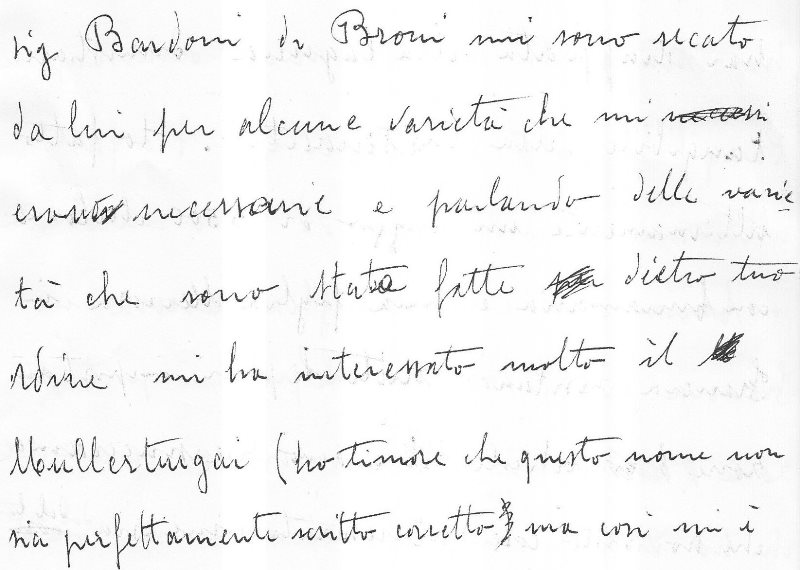 sig Bardoni di Broni mi sono recato
da lui per alcune varietà che mi
erano necessarie e parlando delle varie
tà che sono state fatte dietro tuo
ordine mi ha interessato molto il
Mullerturgai (ho timore che questo nome non
sia perfettamente scritto corretto) ma così mi è